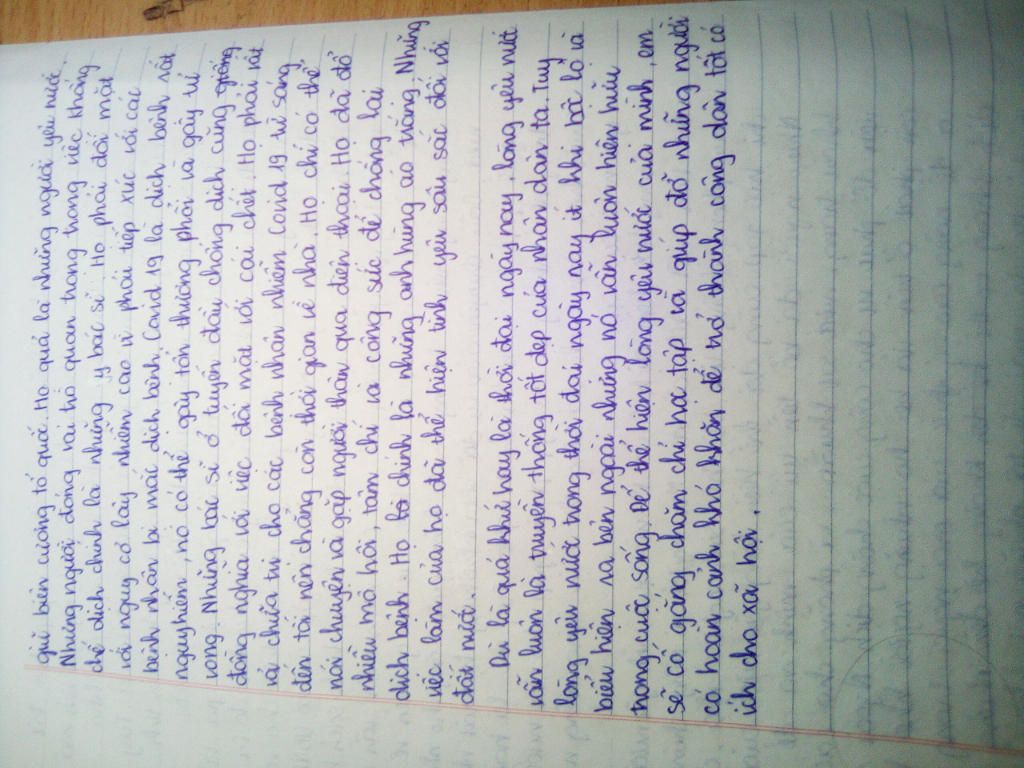 giữ biên cương tổ quốc. Họ quả là những người yêu nước.
Những người đóng vai trò quan trọng trong việc khống
chế dịch chính là những y bác sĩ. Họ phải đối mặt
với nguy cơ lây nhiễm cao vì phải tiếp xúc với các
bệnh nhân bị mắc dịch bệnh. Covid 19 là dịch bệnh rất
nguy hiểm, nó có thể gây tổn thương phổi và gây tử
vong. Những bác sĩ ở tuyến đầu chống dịch cũng giống
đồng nghĩa với việc đối mặt với cái chết. Họ phải rất
và chữa trị cho các bệnh nhân nhiễm Covid 19 từ sáng
đến tối nên chẳng còn thời gian về nhà. Họ chỉ có thể
nói chuyện và gặp người thân qua điện thoại. Họ đã đổ
nhiều mồ hôi, tâm chí và công sức để chống lại
dịch bệnh. Họ chính là những anh hùng áo trắng. Những
việc làm của họ đã thể hiện tình yêu sâu sắc đối với
đất nước.
Dù là quá khứ hay là thời đại ngày nay, lòng yêu nước
vẫn luôn là truyền thống tốt đẹp của nhân dân ta. Tuy
lòng yêu nước trong thời đại ngày nay ít khi bộc lộ và
biểu hiện ra bên ngoài nhưng nó vẫn luôn hiện hữu
trong cuộc sống. Để thể hiện lòng yêu nước của mình, em
sẽ cố gắng chăm chỉ học tập và giúp đỡ những người
có hoàn cảnh khó khăn để trở thành công dân tốt có
ích cho xã hội.